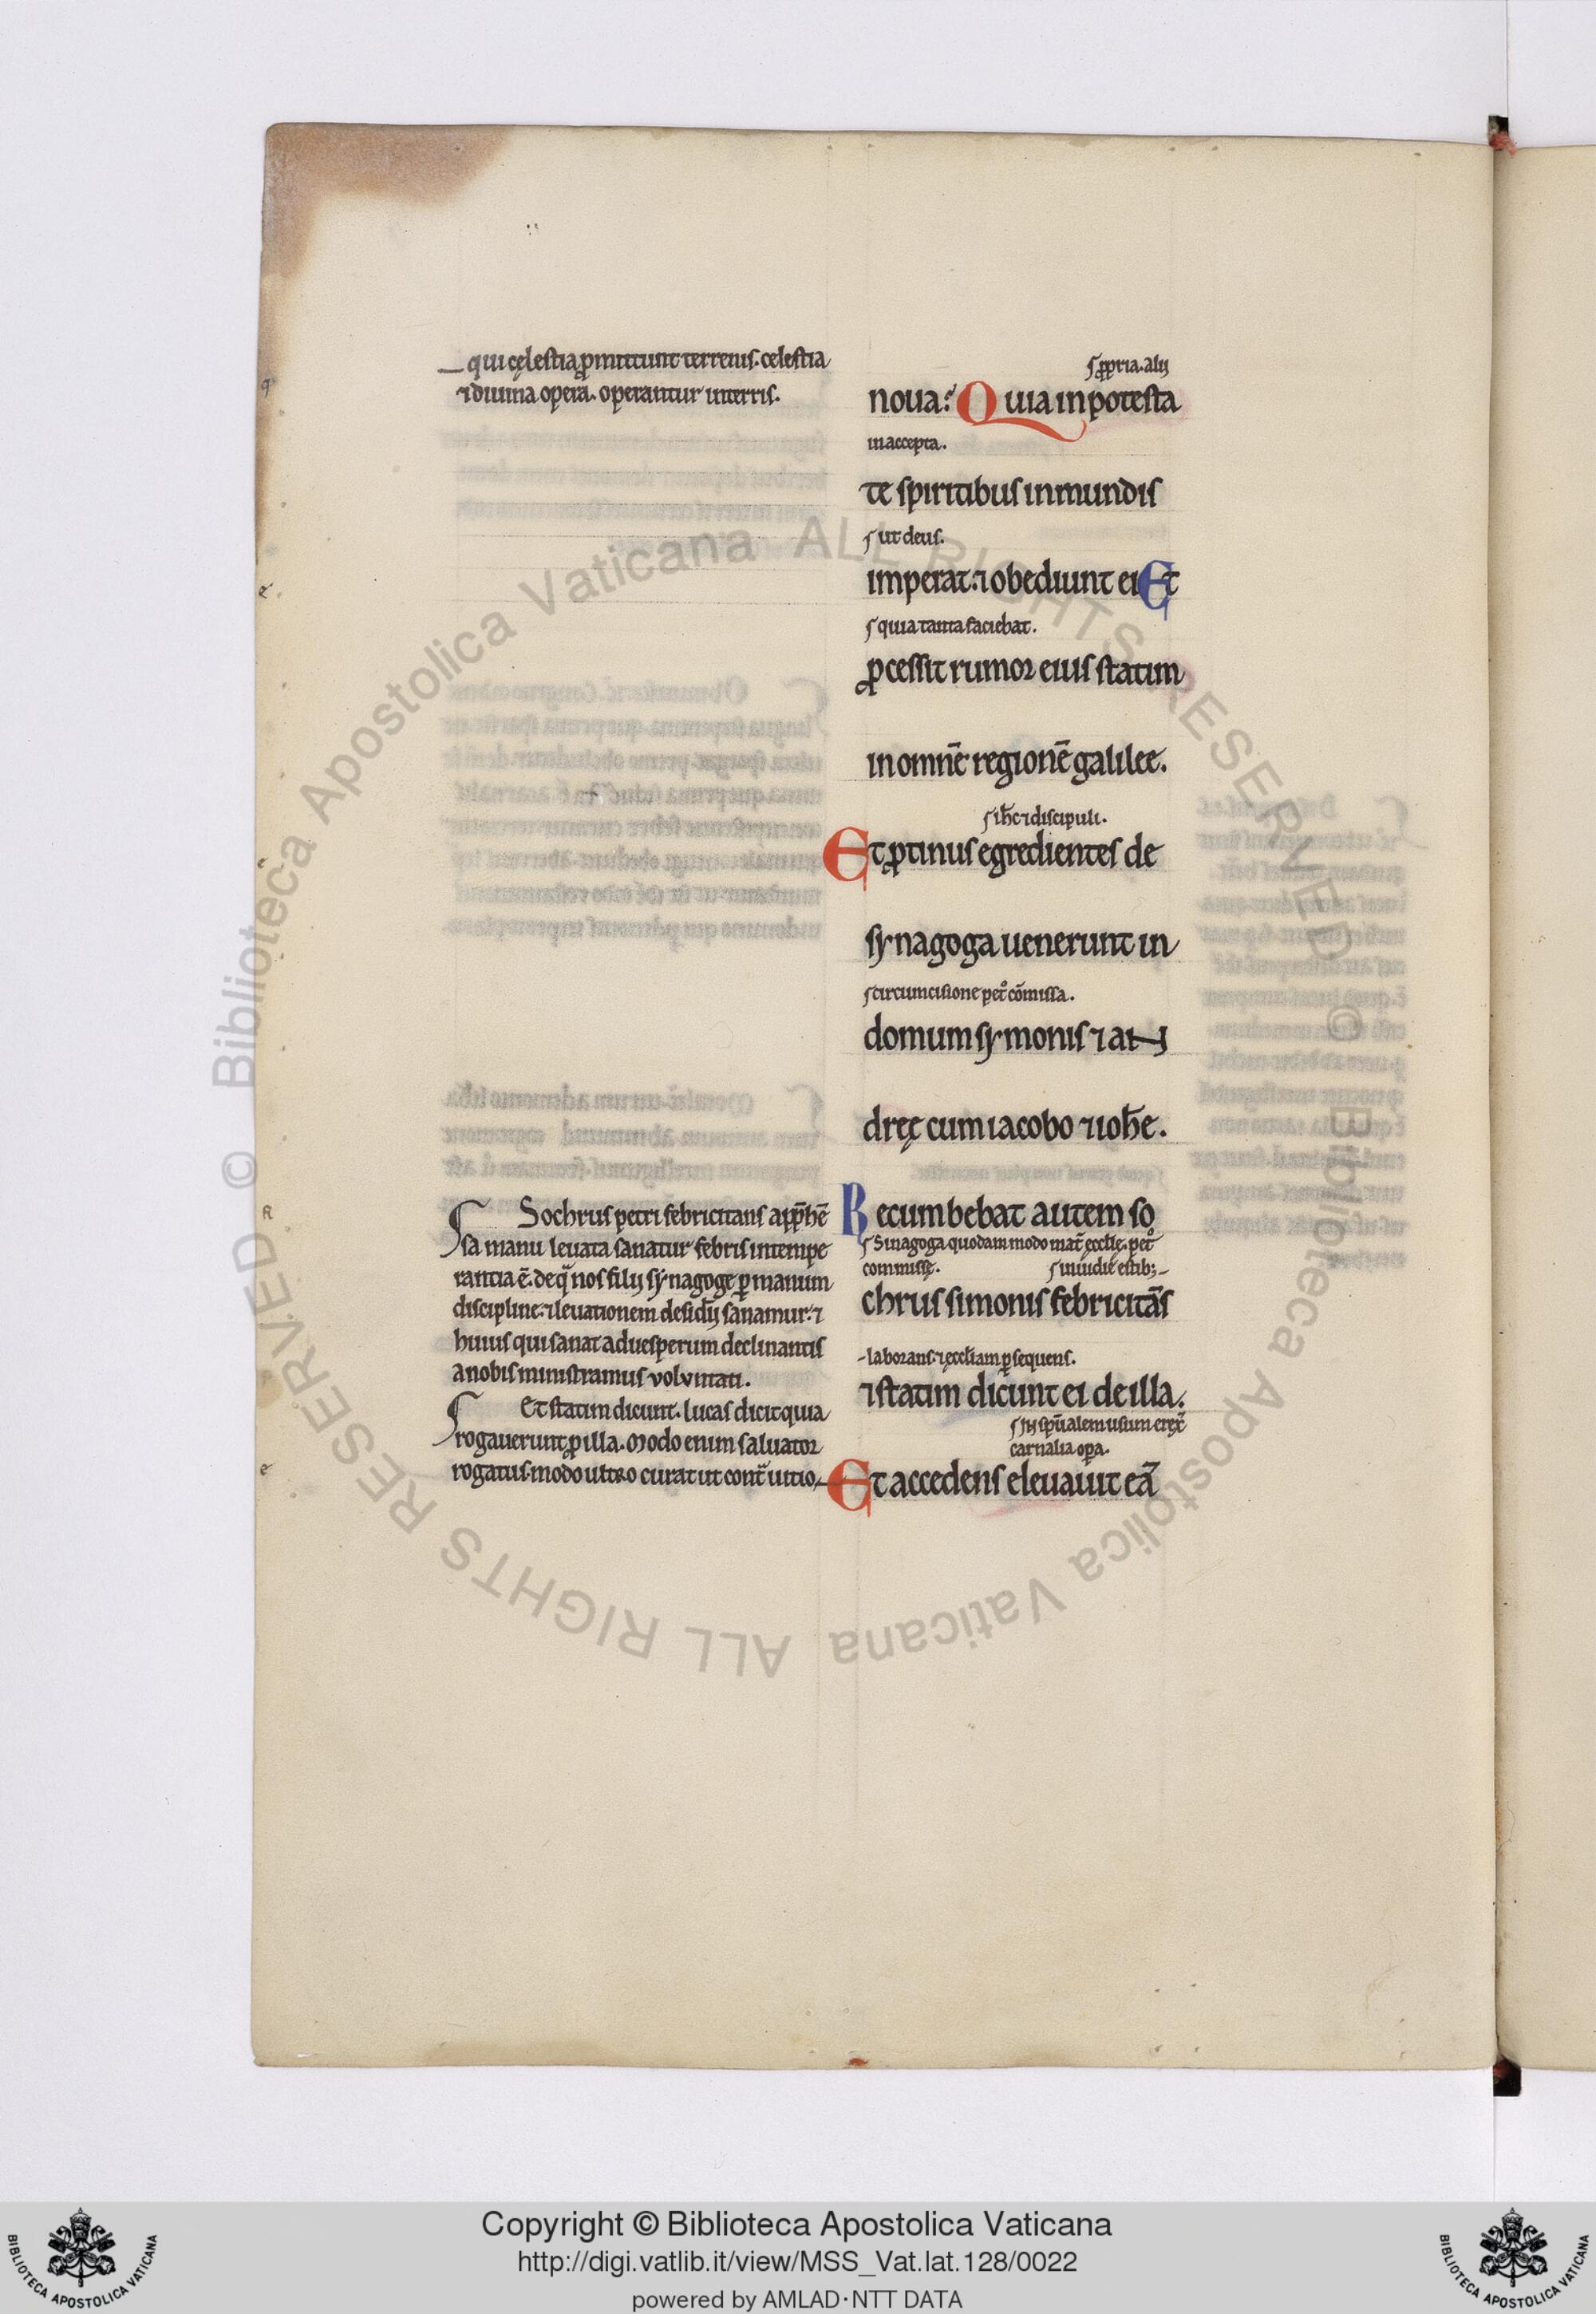 qui cęlestia ꝓmittunt terrenis. celestia
⁊ diuina opera. operantur in terris.
ſ ꝓpria. alij
noua? Quia in potesta
in accepta.
te spiritibus inmundis
ſ ut deus.
imperat. ⁊ obediunt ei Et
ſ quia tanta faciebat.
ꝓcessit rumor eius statim
in omnē regionē galilee.
ſ ih̅c ⁊ discipuli.
Et ꝓtinus egredientes de
synagoga uenerunt in
ſ circumcisione pet᷒ cōmissa.
domum symonis ⁊ an
dręę cum iacobo ⁊ ioh̅e.
Recumbebat autem so
ſ Sinagoga quodam modo mat̄ ęccl̅ię. pet᷒
commissę.
ſ inuidię estib;
chrus simonis febricitās
laborans. ⁊ ęccl̅iam ꝑsequens.
⁊ statim dicunt ei de illa.
ſ in sp̅ualem usum erex̄
carnalia oꝑa.
Et accedens eleuauit eā
Sochrus petri febricitans app̅hē
sa manu leuata sanatur febris intempe
rantia ē. de q̄ nos filij synagogę ꝑ manum
discipline. ⁊ leuationem desid̅ij sanamur. ⁊
huius qui sanat aduesperum declinantis
a nobis ministramus voluntati.
Et statim dicunt. lucas dicit quia
rogauerunt ꝓ illa. Modo enim saluator
rogatus. modo ultro curat ut cont̄ uitio
Copyright © Biblioteca Apostolica Vaticana
http://digi.vatlib.it/view/MSS_Vat.lat.128/0022
powered by AMLAD·NTT DATA
BIBLIOTECA APOSTOLICA VATICANA
BIBLIOTECA APOSTOLICA VATICANA
© Biblioteca Apostolica Vaticana ALL RIGHTS RESERVED
© Biblioteca Apostolica Vaticana ALL RIGHTS RESERVED